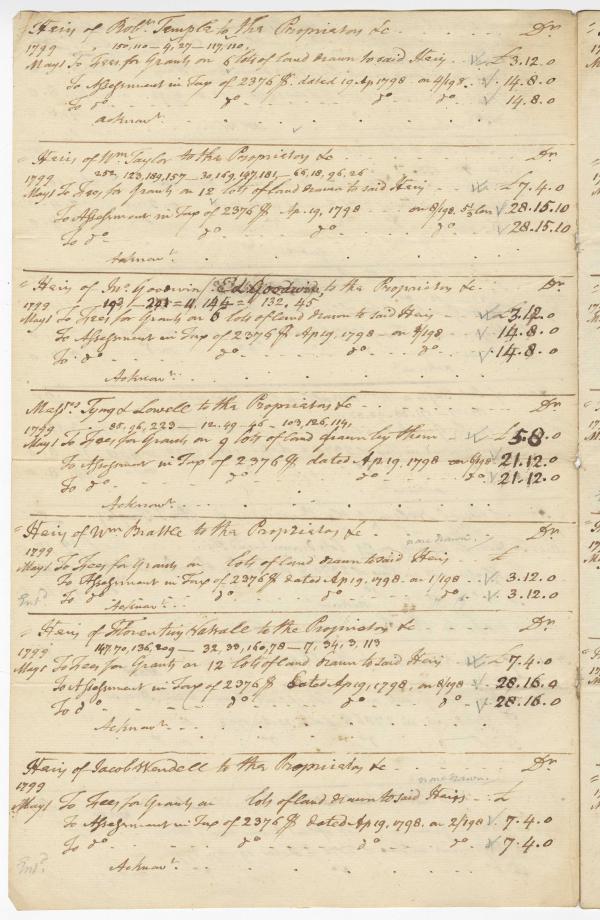 Heirs of Robt. Temple to the Propriators &c Dr.
1799 150, 110 — 9, 27 — 117, 110,
May 1 To Fees for Grants on 6 lots of land drawn to said Heirs £3.12.0
To Assessment in Tax of 2376 $. dated 19 Ap 1798 on 4/198 14.8.0
To do. do. do. do. 14.8.0
acknowt.
Heirs of Wm. Taylor to the Propriators &c Dr.
1799 252, 123, 189, 157 — 30, 169, 147, 181 — 66, 18, 96, 26
May 1 To Fees for Grants on 12 lots of land drawn to said Heirs £7.4.0
To Assessment in Tax of 2376 $ Ap. 19, 1798 on 8/198 28.15.10
To do. do. do. 28.15.10
Acknowt.
Heirs of Jno. Goodwin / Ed. Goodwin to the Propriators &c. Dr.
1799 144 132, 45
May 1 To Fees for Grants on 6 lots of land drawn to said Heirs £3.12.0
To Assessment in Tax of 2376 $ Ap 19, 1798 on 4/198 14.8.0
To do. do. do. do. 14.8.0
Acknowt.
Messrs. Tyng & Lowell to the Propriators &c Dr.
1799 88, 96, 223 — 12, 49, 46 — 103, 126, 114,
May 1 To Fees for Grants on 9 lots of land drawn by them £5.8.0
To Assessment in Tax of 2376 $ dated Ap. 19, 1798 on 6/198 21.12.0
To do. do. do. do. 21.12.0
Acknowt.
Heirs of Wm Brattle to the Propriators &c Dr.
1799 none drawn
May 1 To Fees for Grants on lots of land drawn to said Heirs £
To Assessment in Tax of 2376 $ dated Ap 19, 1798 on 1/198 3.12.0
Entd. To do. do. do. do. 3.12.0
Acknowt.
Heirs of Florentius Vassall to the Propriators &c Dr.
1799 147, 70, 136, 209 — 32, 33, 160, 78 — 7, 34, 3, 113
May 1 To Fees for Grants on 12 lots of land drawn to said Heirs £7.4.0
To Assessment in Tax of 2376 $ dated Ap 19, 1798, on 8/198 28.16.0
To do. do. do. do. 28.16.0
Acknowt.
Heirs of Jacob Wendell to the Propriators &c Dr.
1799 none drawn
May 1 To Fees for Grants on lots of land drawn to said Heirs £
To Assessment in Tax of 2376 $ dated Ap 19, 1798, on 2/198 7.4.0
To do. do. do. do. 7.4.0
Entd. Acknowt.